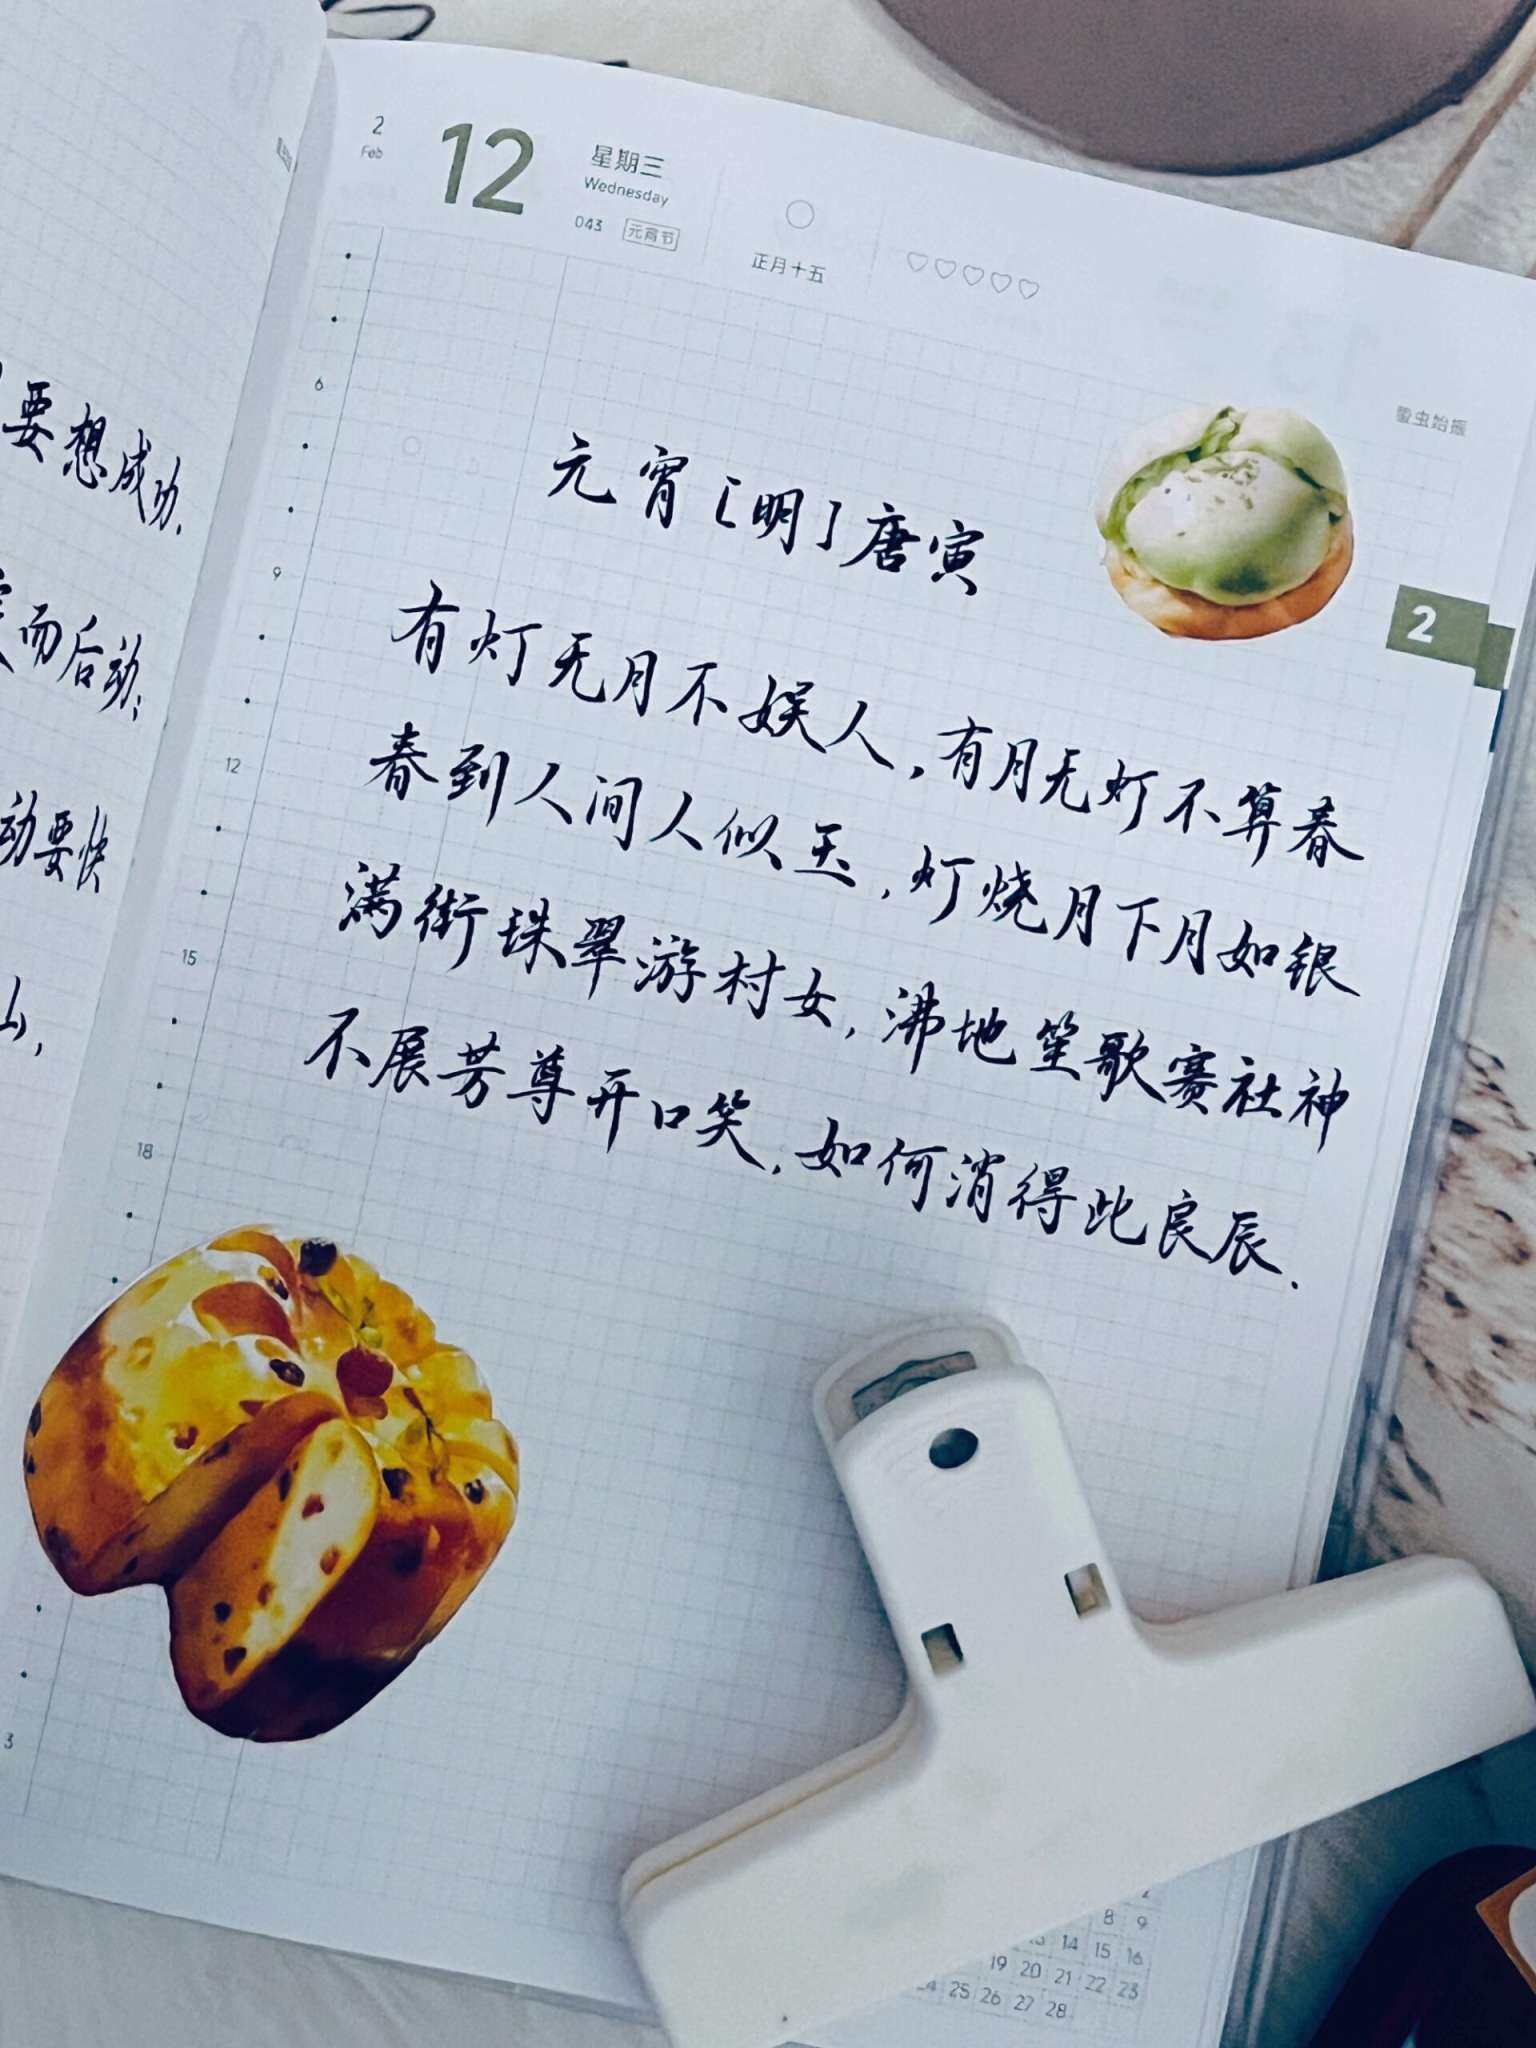 要想成功.
而后动;
动要快
山,
2
Feb
12
星期三
Wednesday
043 元宵节
正月十五
蛰虫始振
2
6
9
12
15
18
3
元宵[明]唐寅
有灯无月不娱人,有月无灯不算春
春到人间人似玉,灯烧月下月如银
满街珠翠游村女,沸地笙歌赛社神
不展芳尊开口笑,如何消得此良辰.
2
8 9
14 15 16
19 20 21 22 23
25 26 27 28